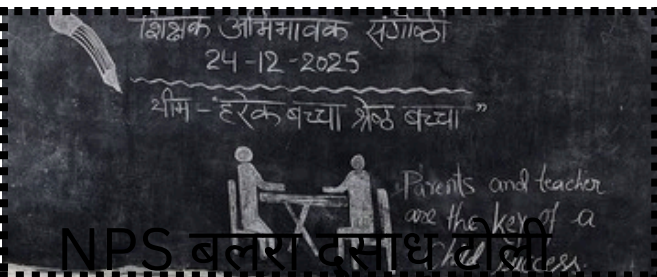 शिक्षक अभिभावक संगोष्ठी
24-12-2025
थीम - "हरेक बच्चा श्रेष्ठ बच्चा"
Parents and teacher
are the key of a
child success.
NPS बलरा दुसाध टोली